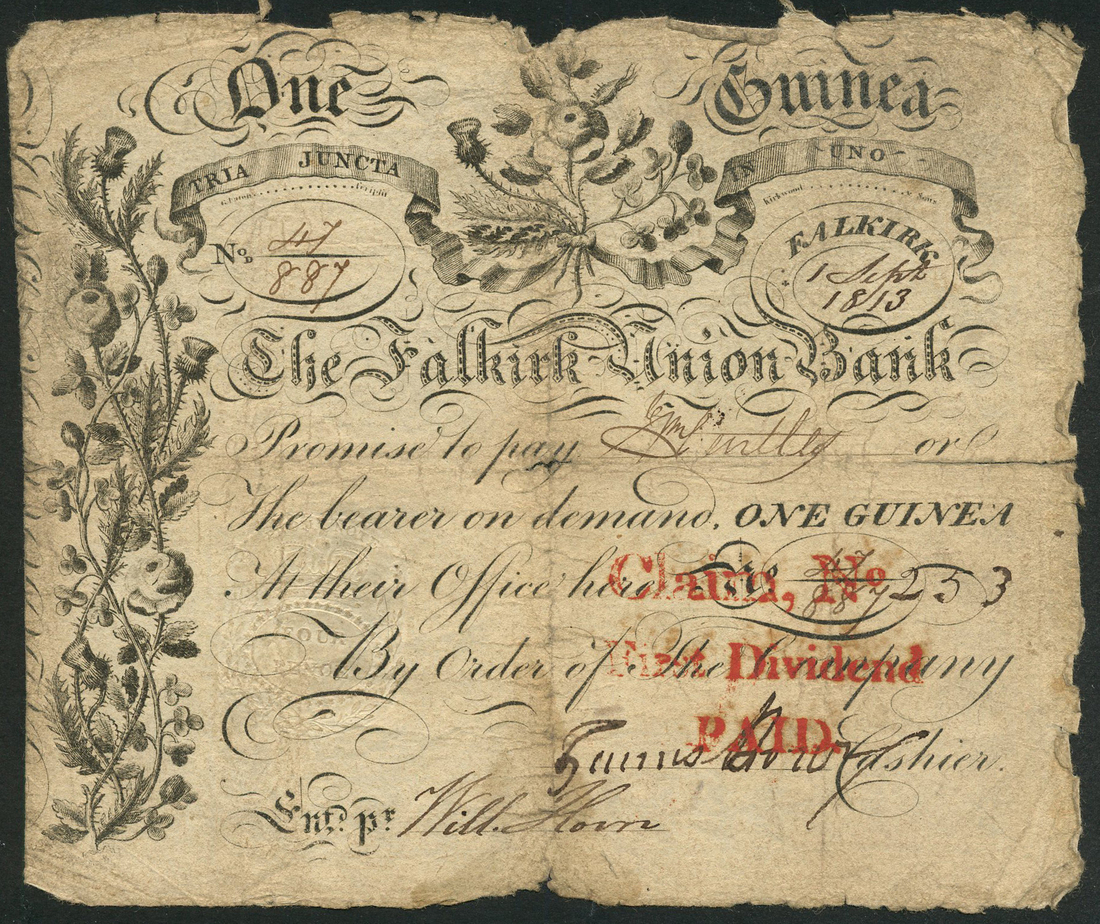 One Guinea
TRIA JUNCTA IN UNO
Kirkwood & Sons
No. 47/887
FALKIRK
1 Sept 1813
The Falkirk Union Bank
Promise to pay or
The bearer on demand, ONE GUINEA
At their Office here No 47/887
Claim, No 253
By Order of The Company
First Dividend
PAID.
Cashier.
Entd. pr. Will.